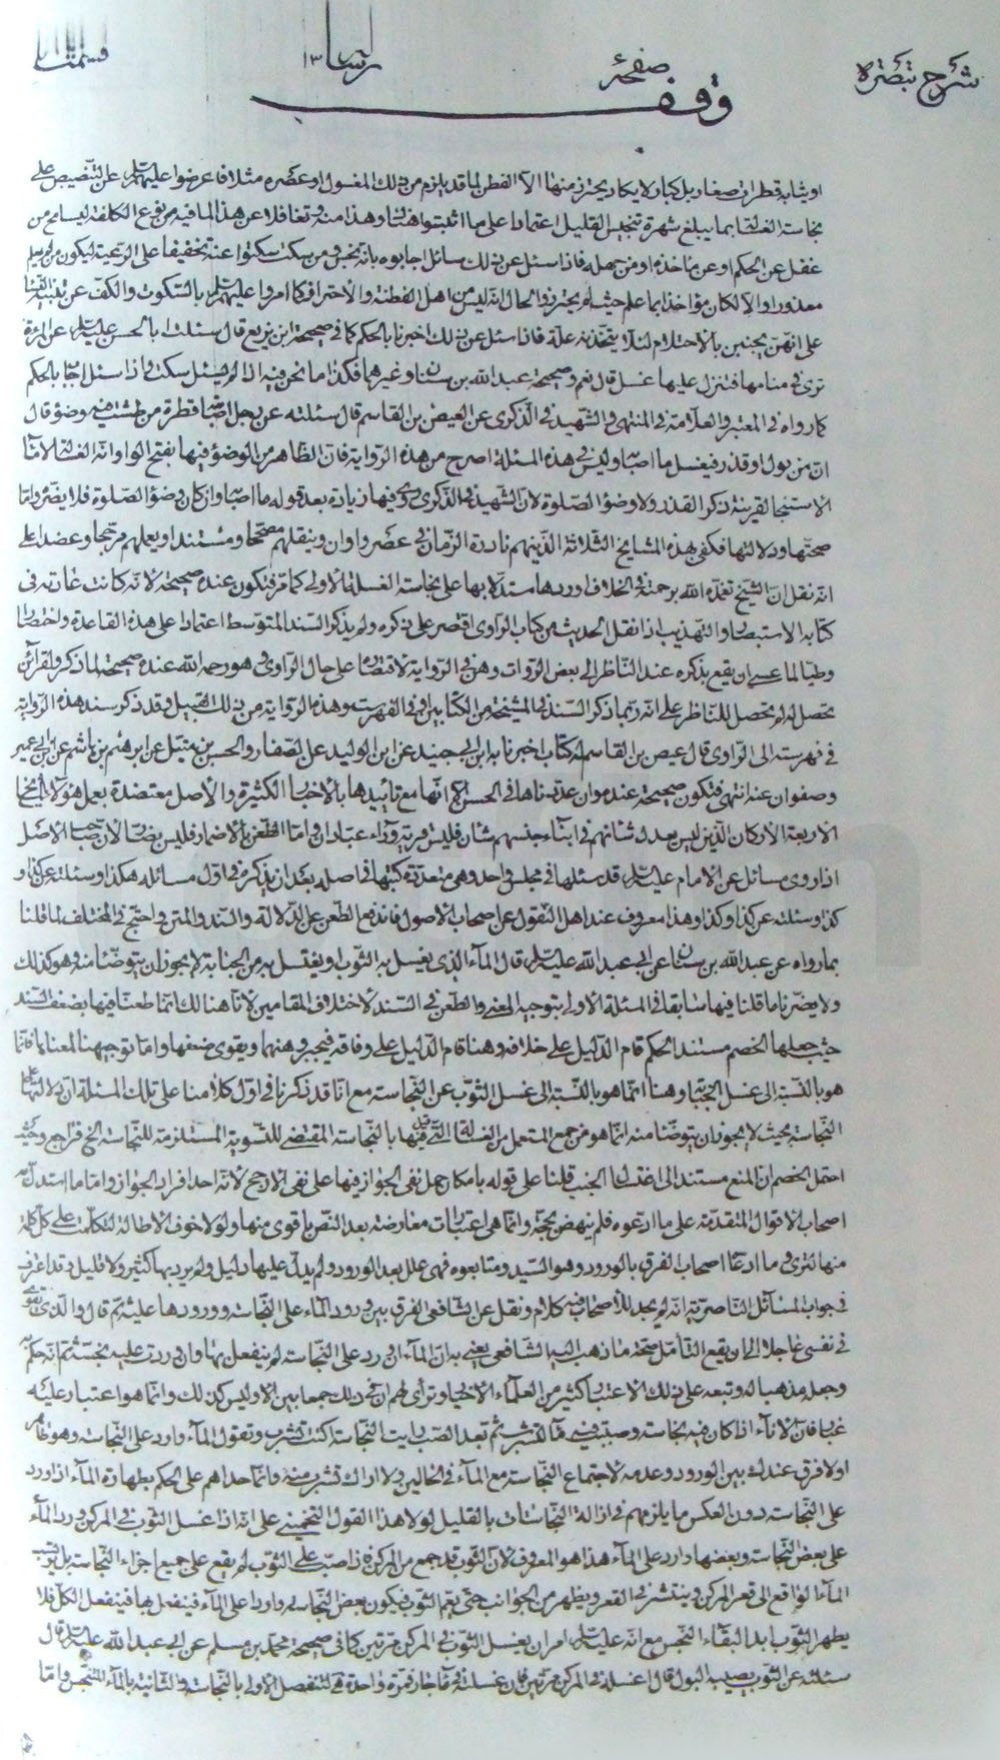 شرح تبصره
صفحة
وقف
او ثيابه قطرات صغار بل كبار ولا يكاد يحترز منها الا الفطن لما قد يلزم من ذلك المغسول او عصره مثلا فاعرضوا عليهم السلام عن التنصيص على
نجاسة الغسالة بما يبلغ شهرة تنجيس القليل اعتمادا على ما اثبتوا هنالك وهذا منه وتغافلا عن هذا لما فيه من نوع الكلفة ليسامح من
غفل عن الحكم او عن ماخذه او من جهله فاذا سئل عن ذلك سائل اجابوه بانه نجس ومن سكت سكتوا عنه تخفيفا على الرعية ليكون من لم يعلم
معذورا والا لكان مؤاخذا بما علم حيث لم يحترز والحال انه ليس من اهل الفطنة والاحتراز وكما امروا عليهم السلام بالسكوت والكف عن تنبيه النساء
على انهن يجنبن بالاحتلام لئلا يتخذنه علة فاذا سئل عن ذلك اخبرنا بالحكم كما في صحيحة ابن بزيع قال سئلت ابا الحسن عليه السلام عن المرئة
ترى في منامها فتنزل عليها غسل قال نعم وصحيحة عبد الله بن سنان وغيرهما فكذا ما نحن فيه اذا لم يسئل سكت واذا سئل اجاب بالحكم
كما رواه في المعتبر والعلامة في المنتهى والشهيد في الذكرى عن العيص بن القاسم قال سئلته عن رجل اصابه قطرة من طشت فيه وضوء قال
ان من بول او قذر فيغسل ما اصابه وليس في هذه المسئلة اصرح من هذه الرواية فان الظاهر من الوضوء فيها بفتح الواو انه الغسالة لا ماء
الاستنجاء لقرينة ذكر القذر ولا وضوء الصلوة لان الشهيد في الذكرى روى فيها زيادة بعد قوله ما اصابه وان كان وضوء الصلوة فلا يضره واما
صحتها ودلالتها فكفى بهذه المشايخ الثلاثة الذين هم نادرة الزمان في عصر واوان وبنقلهم مصححا ومستندا وبعلمهم مرجحا وعضدا على
انه نقل ان الشيخ تغمده الله برحمته في الخلاف اوردها مستدلا بها على نجاسة الغسالة الاولى كما مر فتكون عنده صحيحة لانه كانت عادته في
كتابه الاستبصار والتهذيب اذا نقل الحديث من كتاب الراوى اقتصر على ذكره ولم يذكر السند المتوسط اعتمادا على هذه القاعدة واختصارا
وطيا لما عسى ان يقع بذكره عند الناظر الى بعض الروات وهن في الرواية لاقتصاره على حال الراوى وهو رحمه الله عنده صحيحة لما ذكر ولقرائن
تحصل له لم تحصل للناظر على انه ربما ذكر السند في المشيخة من الكتابين او في الفهرست وهذه الرواية من ذلك القبيل وقد ذكر سند هذه الرواية
في فهرسته الى الراوى قال عيص بن القاسم له كتاب اخبرنا به ابن ابى جيد عن ابن الوليد عن الصفار والحسن بن متيل عن ابرهيم بن هاشم عن ابن ابى عمير
وصفوان عنه انتهى فتكون صحيحة عنده وان عددناها في الحسن الا انها مع تأييدها بالاخبار الكثيرة والاصل معتضدة بعمل هؤلاء المشايخ
الاربعة الاركان الذين ليس يعدل شانهم في ابناء جنسهم شان فليس قرية وراء عبادان واما الطعن بالاضمار فليس بضائر لان صاحب الاصل
اذا روى مسائل عن الامام عليه السلام قد سئلها في مجلس واحد وهى متعددة كتبها في اصله بعد ان يذكره في اول مسائله هكذا وسئلته عن كذا و
كذا وسئلته عن كذا وكذا وهذا معروف عند اهل النقول عن اصحاب الاصول فاندفع الطعن عن الدلالة والسند والمتن واحتج في المختلف لما قلنا
بما رواه عن عبد الله بن سنان عن ابى عبد الله عليه السلام قال الماء الذى يغسل به الثوب او يغتسل به من الجنابة لا يجوز ان يتوضا منه وهو كذلك
ولا يضرنا ما قلنا فيها سابقا في المسئلة الاولى بتوجيه المعنى والطعن في السند لاختلاف المقامين لانا هنالك انما طعنا فيها بضعف السند
حيث جعلها الخصم مستند الحكم قام الدليل على خلافه وهنا قام الدليل على وفاقه فيجبر وهنها ويقوى ضعفها واما توجيهنا لمعناها فانما
هو بالنسبة الى غسل الجنابة وهنا انما هو بالنسبة الى غسل الثوب عن النجاسة مع انا قد ذكرنا في اول كلامنا على تلك المسئلة ان دلالتها على
النجاسة بحيث لا يجوز ان يتوضا منه انما هو من جمع المستعمل من الغسالة التى قلنا فيها بالنجاسة المقتضى للتسوية المستلزمة للنجاسة الخ فراجع وحيث
احتمل الخصم ان المنع مستند الى اغتسال الجنب قلنا على قوله بامكان حمل نفى الجواز فيها على نفى الارجح لانه احد افراد الجواز واما ما استدل به
اصحاب الاقوال المتقدمة على ما ادعوه فلم ينهض بحجة وانما هى اعتبارات معارضة بعد النص باقوى منها ولولا خوف الاطالة لتكلمت على كل كلمة
منها لترى وما ادعاه اصحاب الفرق بالورود وهو السيد ومتابعوه فهى علل بعد الورود ولم يدل عليها دليل ولم يرد بها كثير ولا قليل وقد اعترف
في جواب المسائل الناصرية انه لم يجد للاصحاب فيه كلام ونقل عن الشافعى الفرق بين ورود الماء على النجاسة وورودها عليه ثم قال والذى يقوى
في نفسى عاجلا الى ان يقع التأمل صحة ما ذهب اليه الشافعى يعنى به ان الماء ان ورد على النجاسة لم ينفعل بها وان وردت عليه نجسته ثم انه حكم به
وجعله مذهبا له وتبعه على ذلك الاعتبار كثير من العلماء الاخيار وترأى لهم ان في ذلك جمعا بين الاولين وليس كذلك وانما هو اعتبار وعليه
غبار فان الاناء اذا كان فيه نجاسة وصببت فيه ماء لتشرب ثم بعد الصب رايت النجاسة اكنت تشرب وتقول الماء وارد على النجاسة وهو طاهر
اولا فرق عندك بين الورود وعدمه لاجتماع النجاسة مع الماء في الحالين ولا اراك تشرب منه وانما حداهم على الحكم بطهارة الماء اذا ورد
على النجاسة دون العكس ما يلزمهم في ازالة النجاسات بالقليل لولا هذا القول التخمينى على انه اذا غسل الثوب في المركن ورد الماء
على بعض النجاسة وبعضها وارد على الماء هذا هو المعروف لان الثوب قد جمع من المركن فاذا صب على الثوب لم يقع على جميع اجزاء النجاسة بل يرسب
الماء الواقع الى قعر المركن وينتشر في القعر ويظهر من الجوانب حتى يعم الثوب فيكون بعض النجاسة واردا على الماء فينفعل بها فينفعل الكل فلا
يطهر الثوب ابدا لبقاء النجس مع انه عليه السلام امر ان يغسل الثوب في المركن مرتين كما في صحيحة محمد بن مسلم عن ابى عبد الله عليه السلام قال
سئلته عن الثوب يصيبه البول قال اغسله في المركن مرتين فان غسلته في ماء جار فمرة واحدة فلتنفصل الاولى بالنجاسة والثانية بالماء المتنجس واما